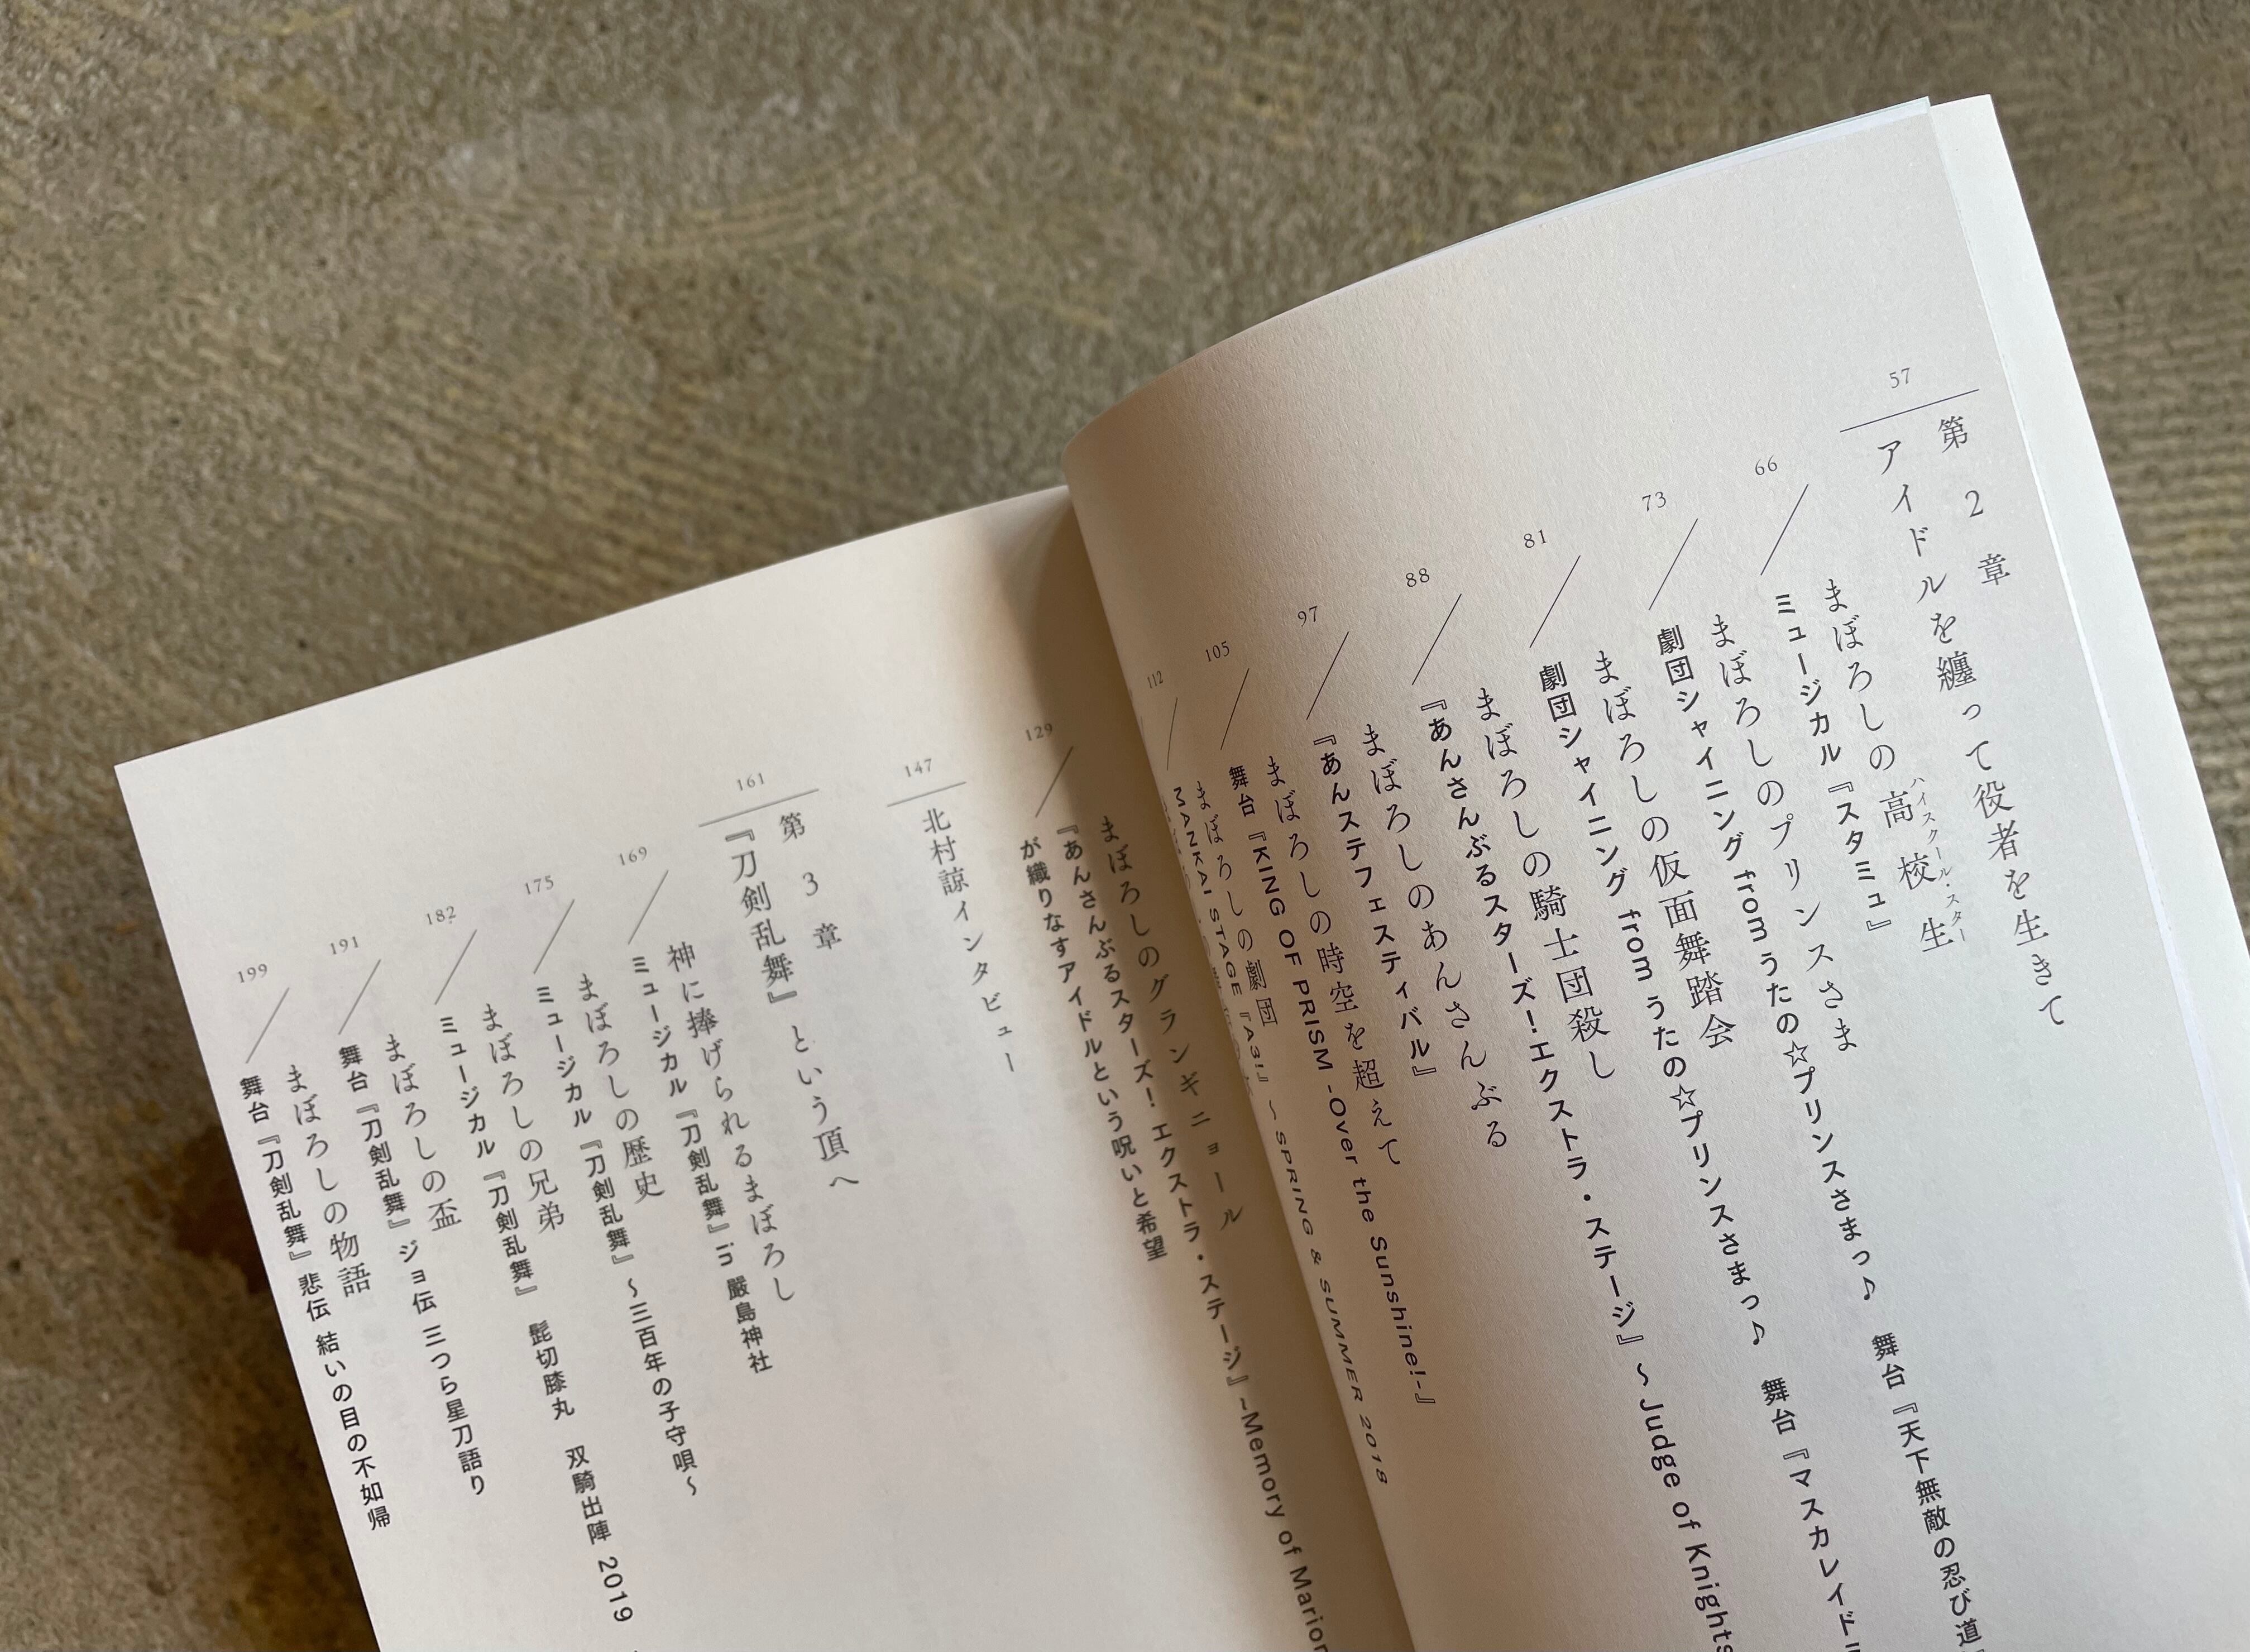 57
第2章
アイドルを纏って役者を生きて
66
ハイスクール・スター
まぼろしの高校生
ミュージカル『スタミュ』
73
まぼろしのプリンスさま
劇団シャイニング from うたの☆プリンスさまっ♪ 舞台『天下無敵の忍び道
81
まぼろしの仮面舞踏会
劇団シャイニング from うたの☆プリンスさまっ♪ 舞台『マスカレイド
88
まぼろしの騎士団殺し
『あんさんぶるスターズ!エクストラ・ステージ』〜Judge of Knights
97
まぼろしのあんさんぶる
『あんステフェスティバル』
105
まぼろしの時空を超えて
舞台『KING OF PRISM -Over the Sunshine!-』
112
まぼろしの劇団
MANKAI STAGE『A3!』〜SPRING & SUMMER 2018
129
まぼろしのグランギニョール
『あんさんぶるスターズ!エクストラ・ステージ』〜Memory of Marion
が織りなすアイドルという呪いと希望
147
北村諒インタビュー
161
第3章
『刀剣乱舞』という頂へ
169
神に捧げられるまぼろし
ミュージカル『刀剣乱舞』in 嚴島神社
175
まぼろしの歴史
ミュージカル『刀剣乱舞』 〜三百年の子守唄〜
182
まぼろしの兄弟
ミュージカル『刀剣乱舞』 髭切膝丸 双騎出陣 2019
191
まぼろしの盃
舞台『刀剣乱舞』ジョ伝 三つら星刀語り
199
まぼろしの物語
舞台『刀剣乱舞』悲伝 結いの目の不如帰